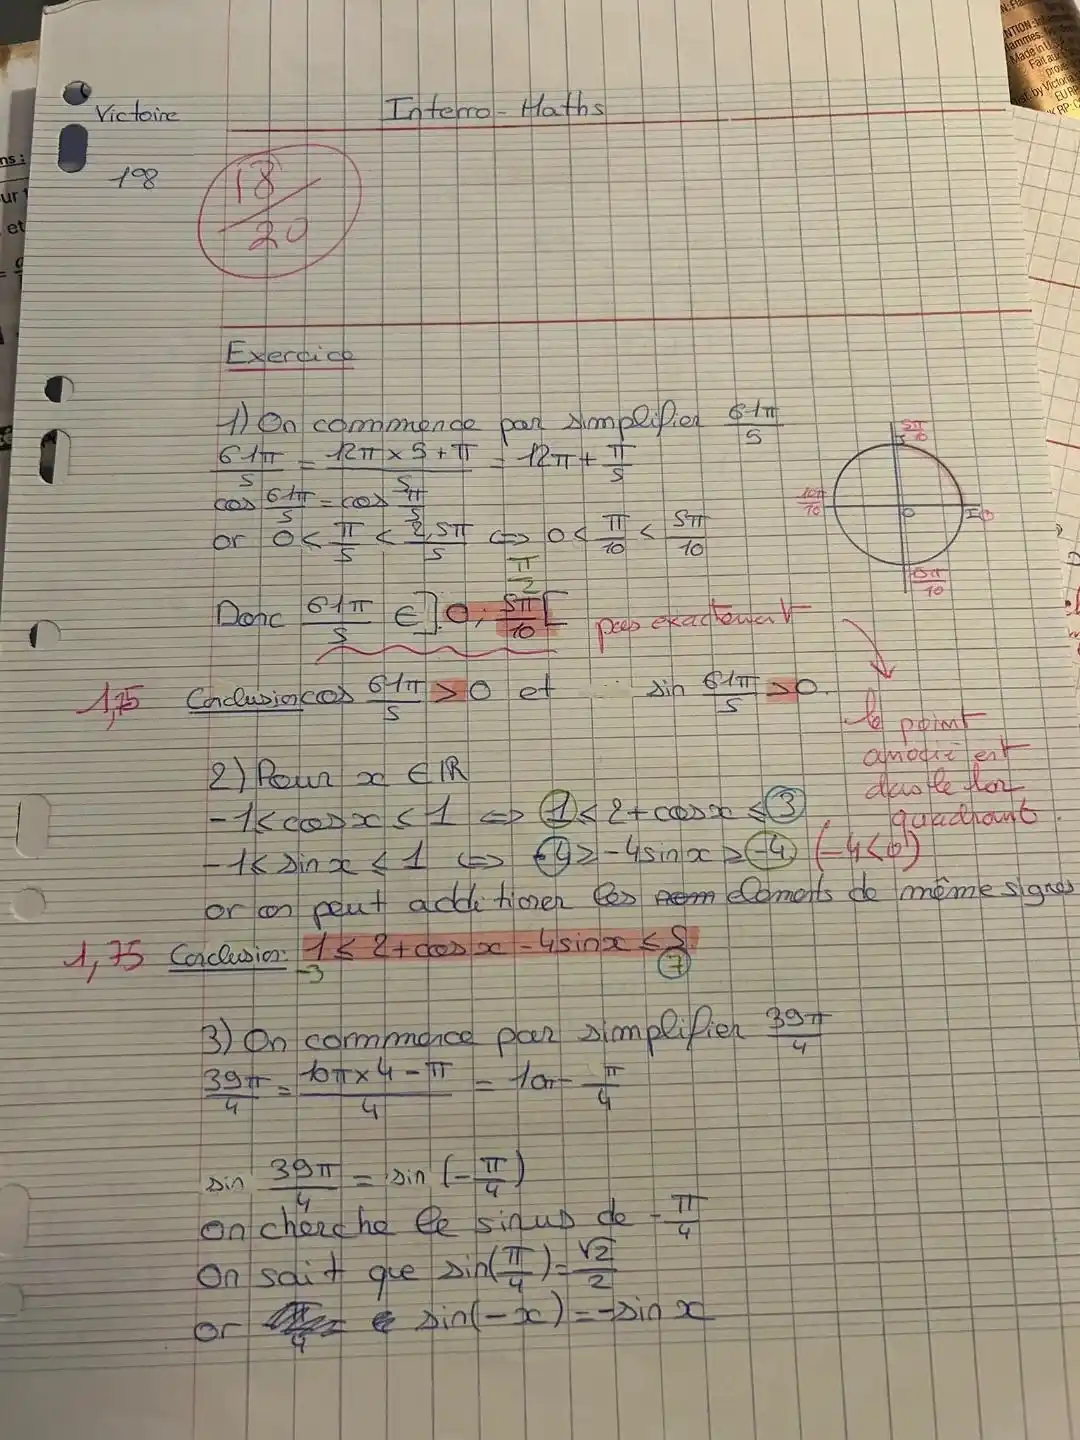 Victoire
Interro-Maths
198
18/20
Exercice
1) On commence par simplifier 61π/5
61π/5 = (12π×5+π)/5 = 12π + π/5
cos 61π/5 = cos π/5
or 0 < π/5 < 2,5π/5 <=> 0 < π/10 < 5π/10
π/2
Donc 61π/5 ∈ ]0; 5π/10[ pas exactement
1,75 Conclusion cos 61π/5 > 0 et sin 61π/5 > 0.
le point
est
dans le 1er
quadrant.
2) Pour x ∈ ℝ
-1 ≤ cos x ≤ 1 <=> 1 ≤ 2 + cos x ≤ 3
-1 ≤ sin x ≤ 1 <=> 4 ≥ -4 sin x ≥ -4 (-4<0)
or on peut additioner les elements de même signes
1,75 Conclusion: 1 ≤ 2 + cos x - 4 sin x ≤ 5
-3 7
3) On commence par simplifier 39π/4
39π/4 = (10π×4 - π)/4 = 10π - π/4
sin 39π/4 = sin (-π/4)
On cherche le sinus de -π/4
On sait que sin(π/4) = √2/2
or sin(-x) = -sin x